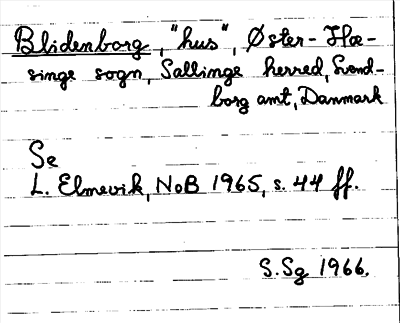 Blidenborg, "hus", Øster-Hæ-
singe sogn, Sallinge herred, Svend-
borg amt, Danmark
Se
L. Elmevik, NoB 1965, s. 44 ff.
S.Sg 1966.